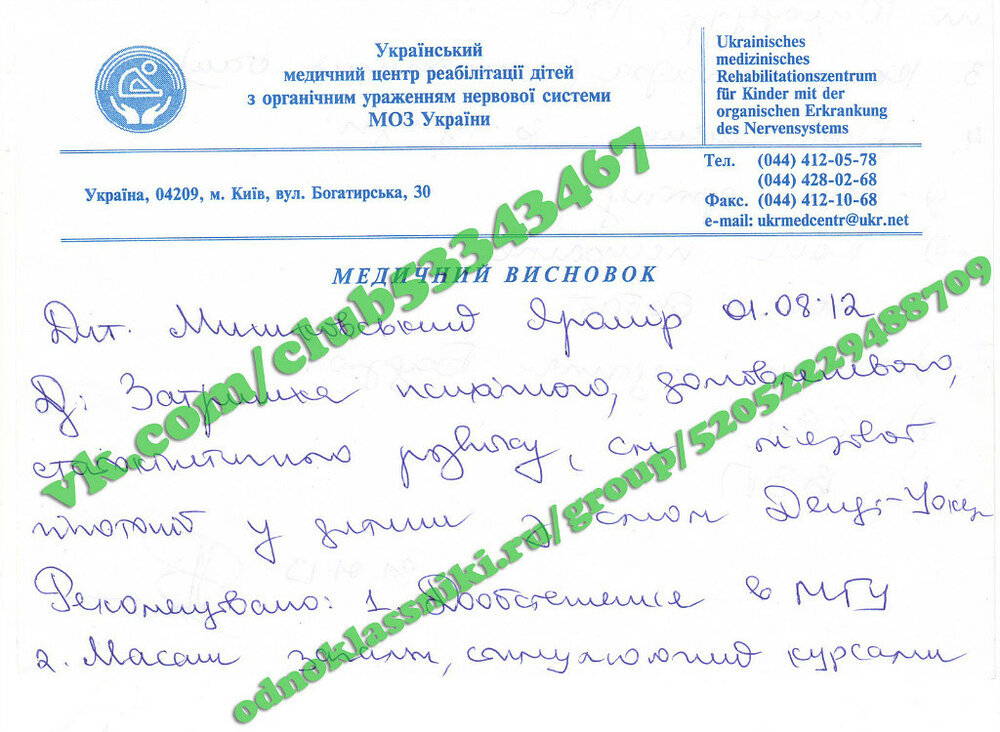 Український
медичний центр реабілітації дітей
з органічним ураженням нервової системи
МОЗ України
Ukrainisches
medizinisches
Rehabilitationszentrum
für Kinder mit der
organischen Erkrankung
des Nervensystems
Тел. (044) 412-05-78
(044) 428-02-68
Факс. (044) 412-10-68
e-mail: ukrmedcentr@ukr.net
Україна, 04209, м. Київ, вул. Богатирська, 30
МЕДИЧНИЙ ВИСНОВОК
Дит. Яромір 01.08.12
Д: Затримка психічного,
розвитку,
гіпотонії у дитини з Денді-Уокер
Рекомендовано: 1. Дообстеження в МГУ
2. Масаж стимулюючий курсами
vk.com/club53343467
odnoklassniki.ru/group/52052229488709